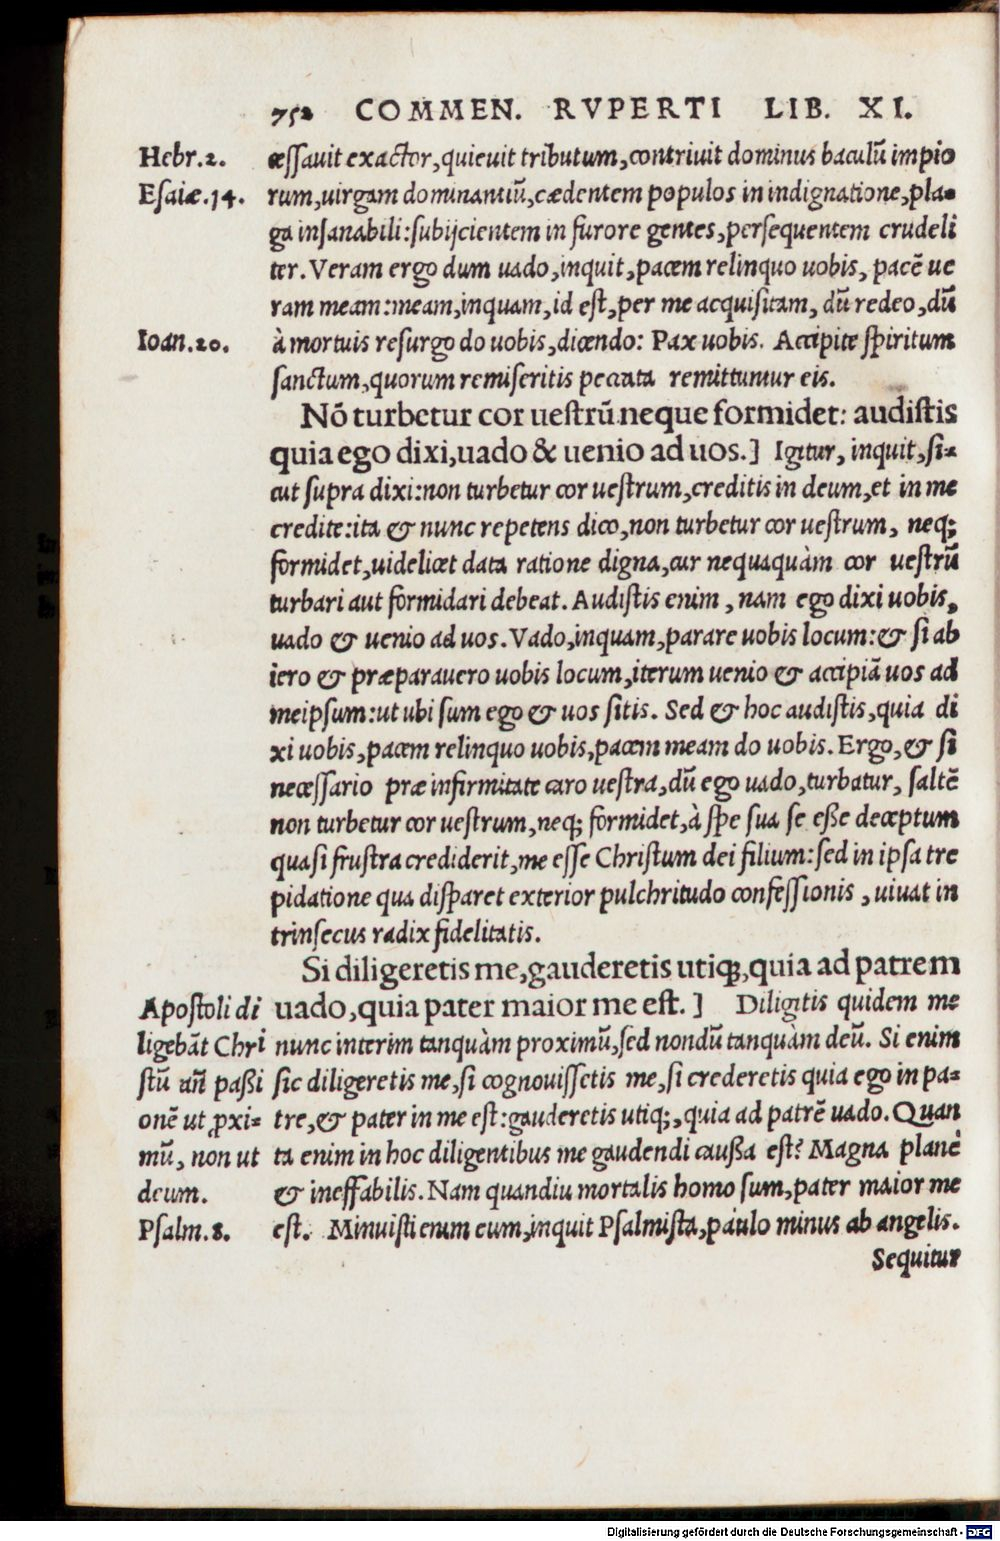 752 COMMEN. RVPERTI LIB. XI.
Hebr.2.
Esaiæ.14.
Ioan.20.
cessauit exactor,quieuit tributum,contriuit dominus baculũ impio
rum,uirgam dominantiũ,cædentem populos in indignatione,pla-
ga insanabili:subijcientem in furore gentes,persequentem crudeli
ter. Veram ergo dum uado,inquit,pacem relinquo uobis, pacẽ ue
ram meam:meam,inquam,id est,per me acquisitam, dũ redeo,dũ
à mortuis resurgo do uobis,dicendo: Pax uobis. Accipite spiritum
sanctum,quorum remiseritis peccata remittuntur eis.
Nõ turbetur cor uestrũ neque formidet: audistis
quia ego dixi,uado & uenio ad uos.] Igitur, inquit,si-
cut supra dixi:non turbetur cor uestrum,creditis in deum,et in me
credite:ita & nunc repetens dico,non turbetur cor uestrum, neq;
formidet,uidelicet data ratione digna,cur nequaquàm cor uestrũ
turbari aut formidari debeat. Audistis enim , nam ego dixi uobis,
uado & uenio ad uos. Vado,inquam,parare uobis locum:& si ab
iero & præparauero uobis locum,iterum uenio & accipiã uos ad
meipsum:ut ubi sum ego & uos sitis. Sed & hoc audistis,quia di
xi uobis,pacem relinquo uobis,pacem meam do uobis. Ergo,& si
necessario præ infirmitate caro uestra,dũ ego uado,turbatur, saltẽ
non turbetur cor uestrum,neq; formidet,à spe sua se esse deceptum
quasi frustra crediderit,me esse Christum dei filium:sed in ipsa tre
pidatione qua disparet exterior pulchritudo confessionis , uiuat in
trinsecus radix fidelitatis.
Si diligeretis me,gauderetis utiq;,quia ad patrem
uado,quia pater maior me est.] Diligitis quidem me
nunc interim tanquàm proximũ,sed nondũ tanquàm deũ. Si enim
sic diligeretis me,si cognouissetis me,si crederetis quia ego in pa-
tre,& pater in me est:gauderetis utiq;,quia ad patrẽ uado. Quan
ta enim in hoc diligentibus me gaudendi caussa est? Magna planè
& ineffabilis. Nam quandiu mortalis homo sum,pater maior me
est. Minuisti enim eum,inquit Psalmista,paulo minus ab angelis.
Apostoli di
ligebãt Chri
stũ añ paßi
onẽ ut ꝓxi-
mũ, non ut
deum.
Psalm.8.
Sequitur
Digitalisierung gefördert durch die Deutsche Forschungsgemeinschaft - DFG